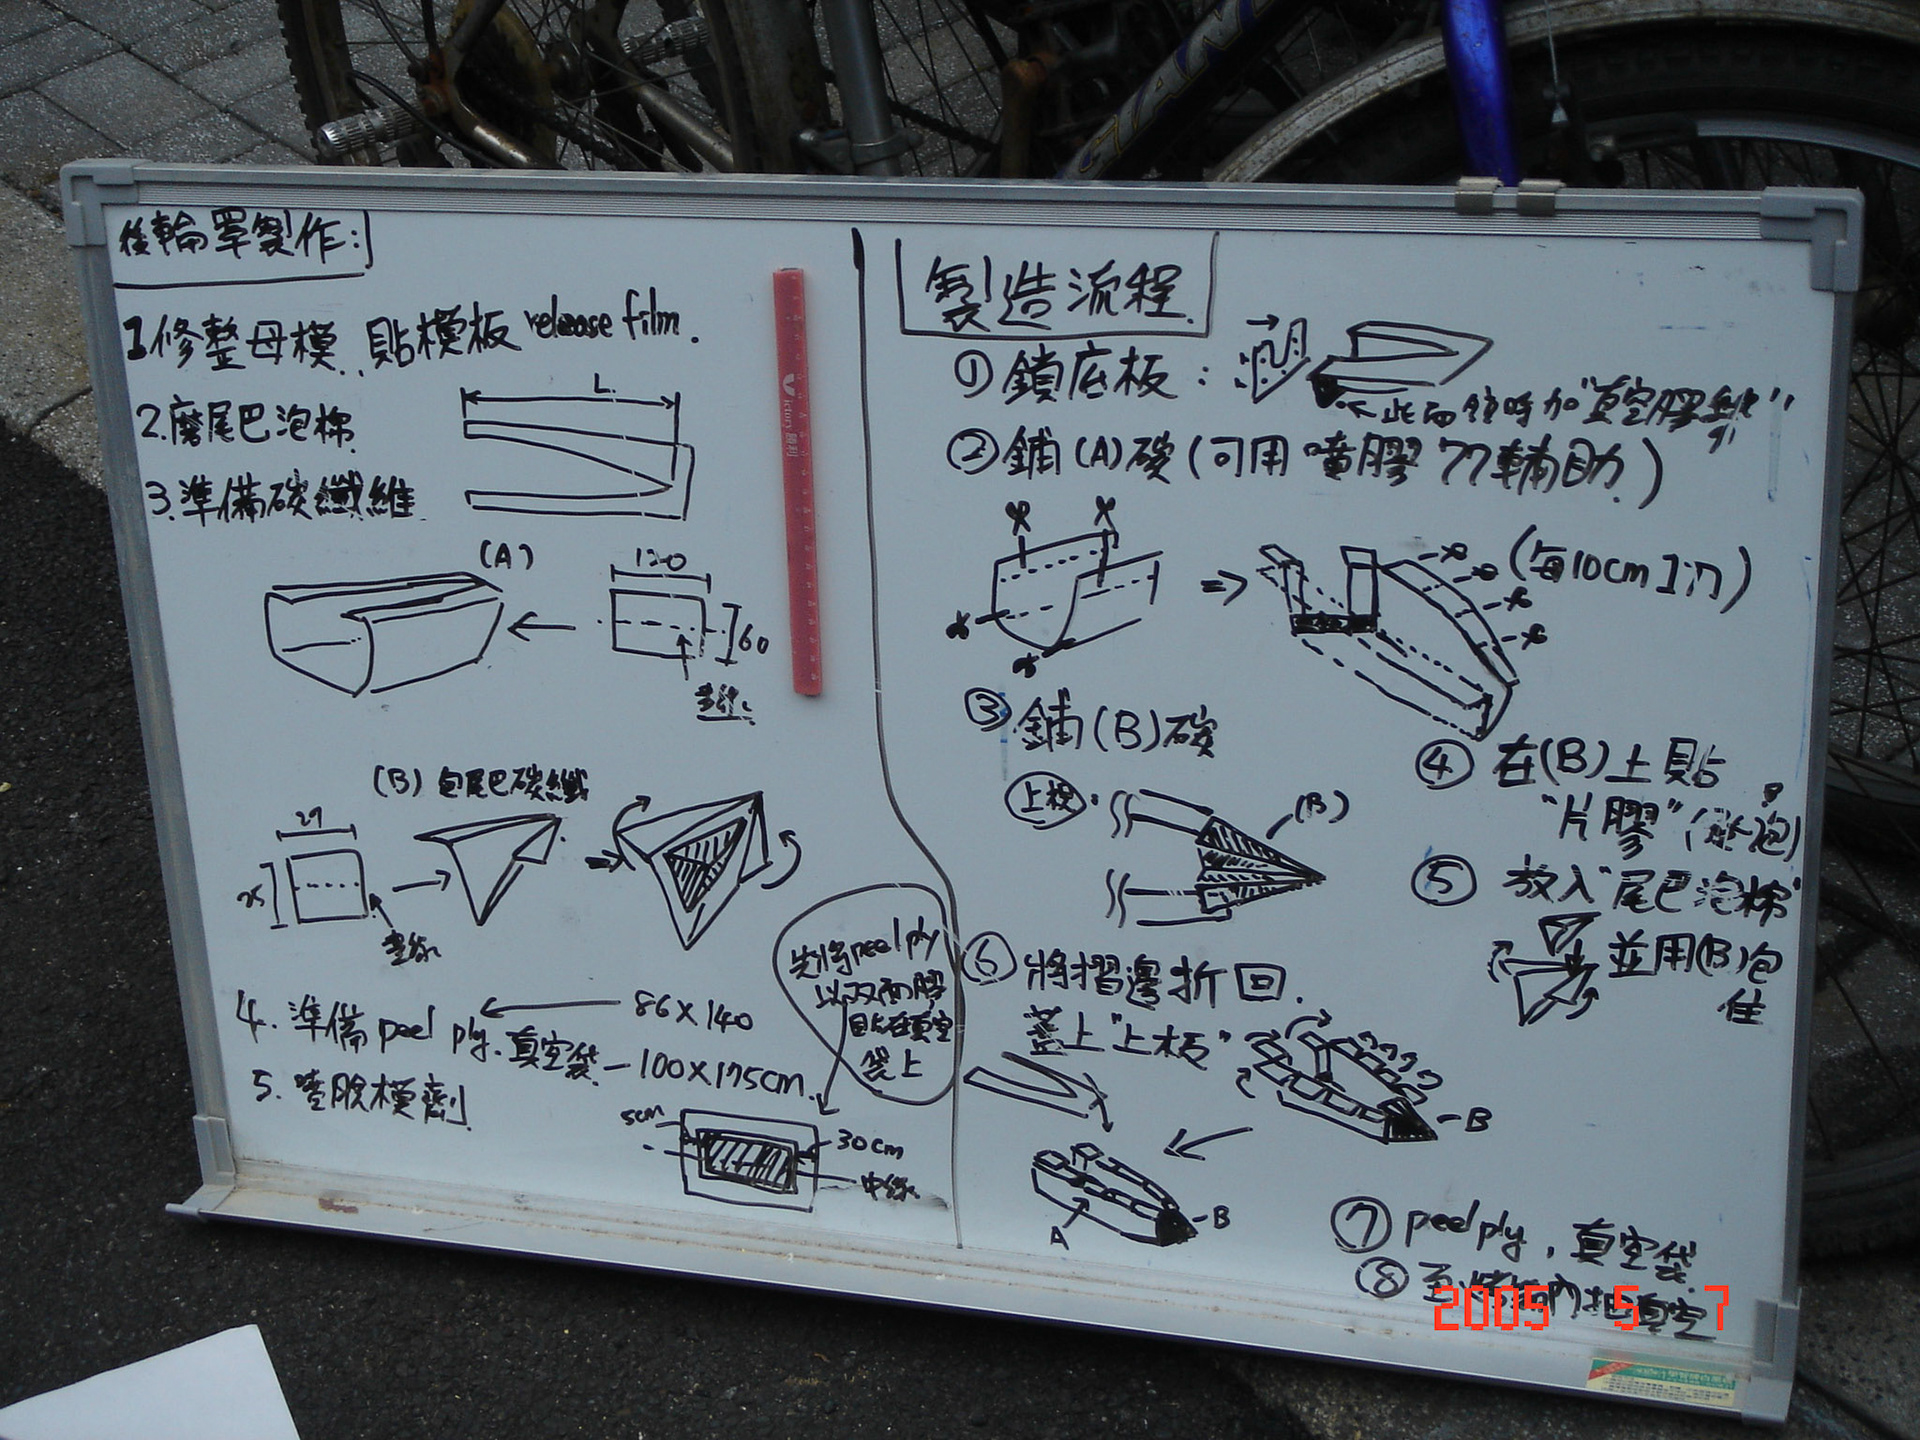 GIANT
後輪罩製作:
1.修整母模、貼模板 release film.
2.磨尾巴泡棉
3.準備碳纖維
L
(A)
120
60
畫線
Victory 勝利
(B) 包尾巴碳纖
27
25
畫線
4. 準備 peel ply. 真空袋
86×140
100×175cm.
5. 噴脫模劑
先將peel ply
以双面膠
貼在真空
袋上
5cm
30cm
中線
製造流程.
① 鎖底板:
此面鎖時加"真空膠
② 鋪(A)碳(可用噴膠77輔助)
(每10cm 1刀)
③ 鋪(B)碳
上視:
(B)
④ 在(B)上貼
"片膠"
⑤ 放入"尾巴泡棉"
並用(B)包
住
⑥ 將摺邊折回.
蓋上"上板"
B
A
B
⑦ peel ply, 真空袋
⑧ 至烤箱內抽真空
2005 5 7